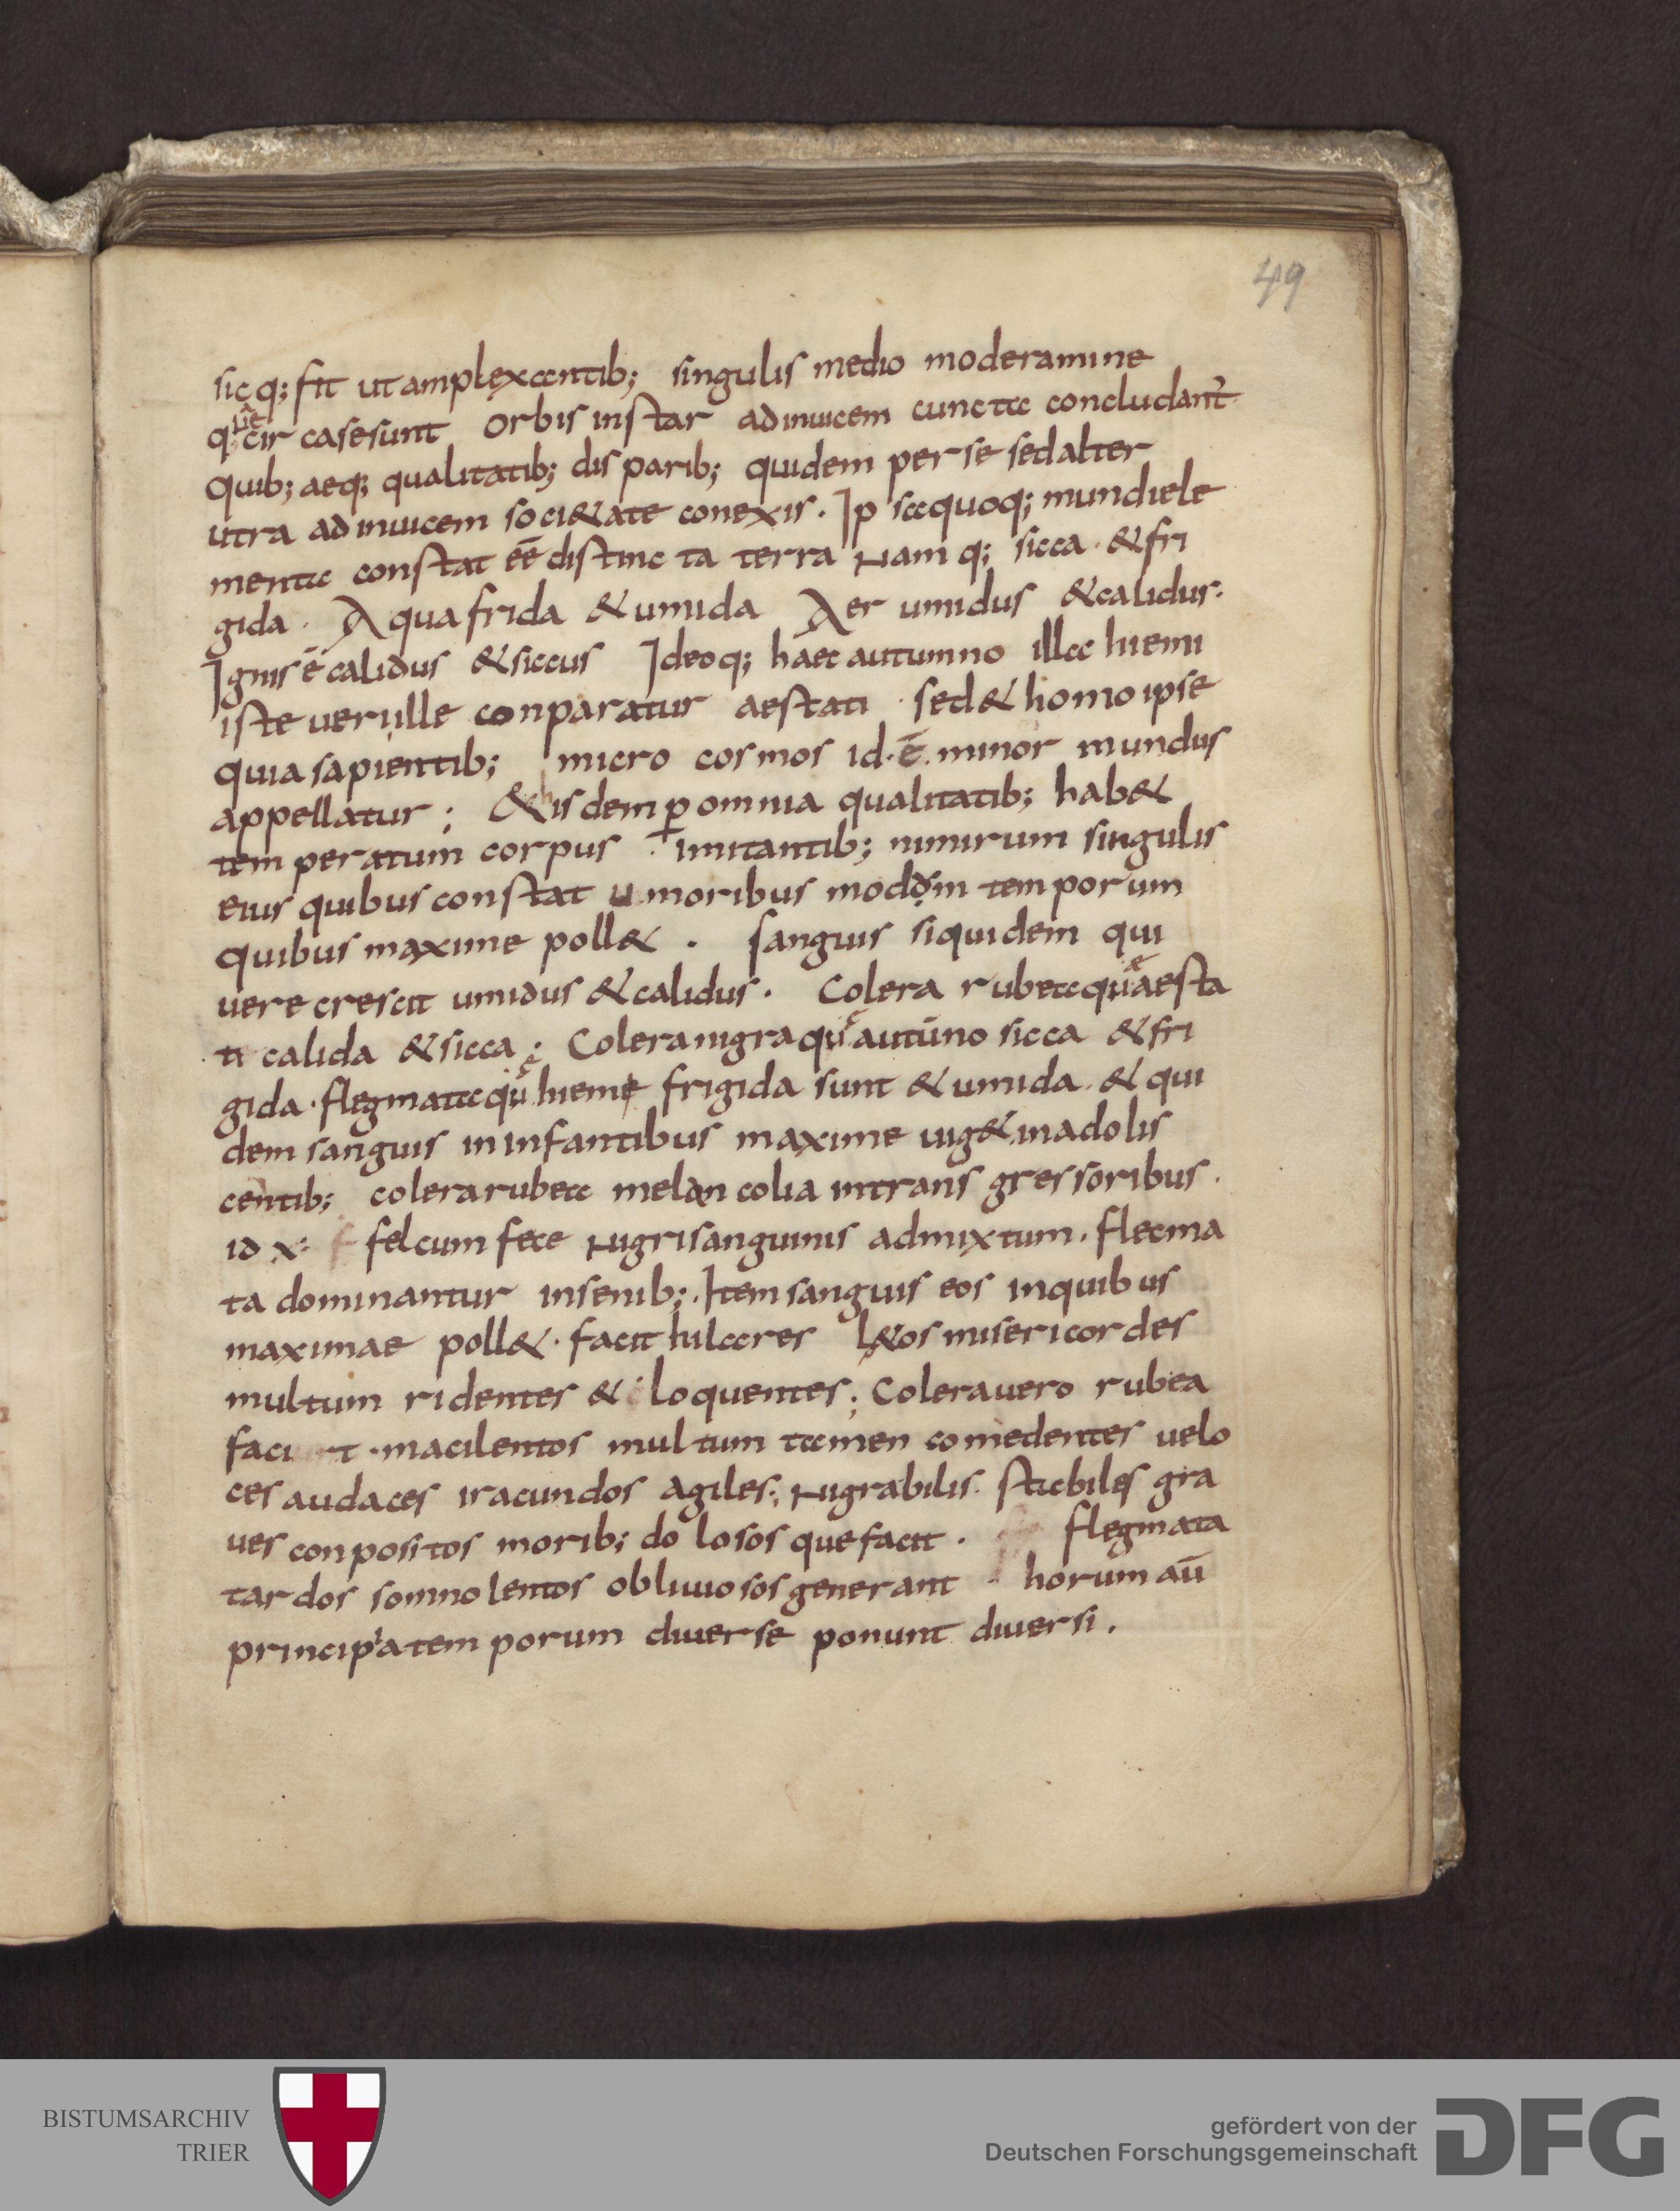 49
sicq; fit utamplexantib; singulis medio moderamine
q cir casesunt orbis instar adinuicem cuncta concludant̃
quib; aeq; qualitatib; dis parib; quidem perse sedalter
utra adinuicem soci&ate conexis. Ip saquoq; mundiele
menta constat eē distinc ta terra Nam q; sicca. &fri
gida. Aqua frida &umida Aer umidus &calidus.
Ignis ē calidus &siccus Ideoq; haec autumno illa hiemi
iste uerı ille conparatur aestati. sed& homo ipse
quia sapientib; micro cosmos id. ē. minor mundus
appellatur; &hisdem ꝑ omnia qualitatib; hab&
tem peratum corpus. imitantib; nimirum singulis
eius quibus constat umoribus modơm tem porum
quibus maxime poll&. sanguis siquidem qui
uere crescit umidus &calidus. Colera rubea quae aesta
ti calida &sicca; Colera nigra quę autūno sicca &fri
gida. flegmata quę hieme frigida sunt &umida. & qui
dem sanguis in infantibus maxime uig& inadolis
centib; colera rubea melan colia intrans gressoribus.
id x. fel cum fece Nigri sanguinis admixtum. flecma
ta dominantur insenib; Item sanguis eos inquibus
maximae poll&. facit hilares l&os misericordes
multum ridentes & loquentes; Colera uero rubea
faciunt. macilentos multum tamen comedentes uelo
ces audaces iracundos agiles; Nigrabilis. stabiles gra
ues conpositos morib; do losos que facit. flegmata
tardos somno lentos obliuiosos generant. horum aū
principia tem porum diuerse ponunt diuersi.
BISTUMSARCHIV
TRIER
gefördert von der
Deutschen Forschungsgemeinschaft
DFG